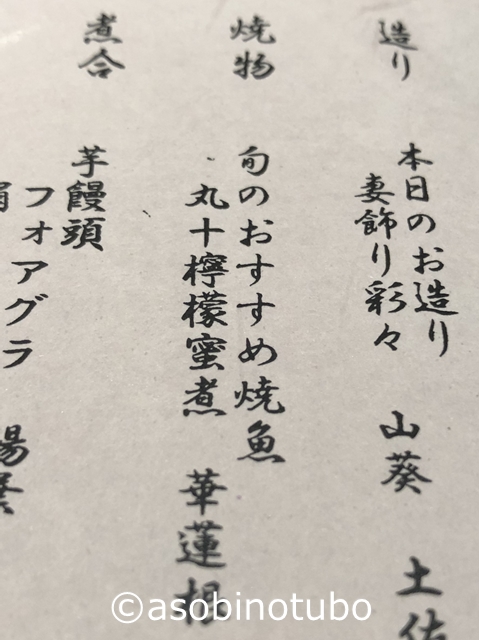 造り
本日のお造り
妻飾り彩々 山葵 土佐
焼物
旬のおすすめ焼魚
丸十檸檬蜜煮 華蓮根
煮合
芋饅頭
フォアグラ
©asobinotubo